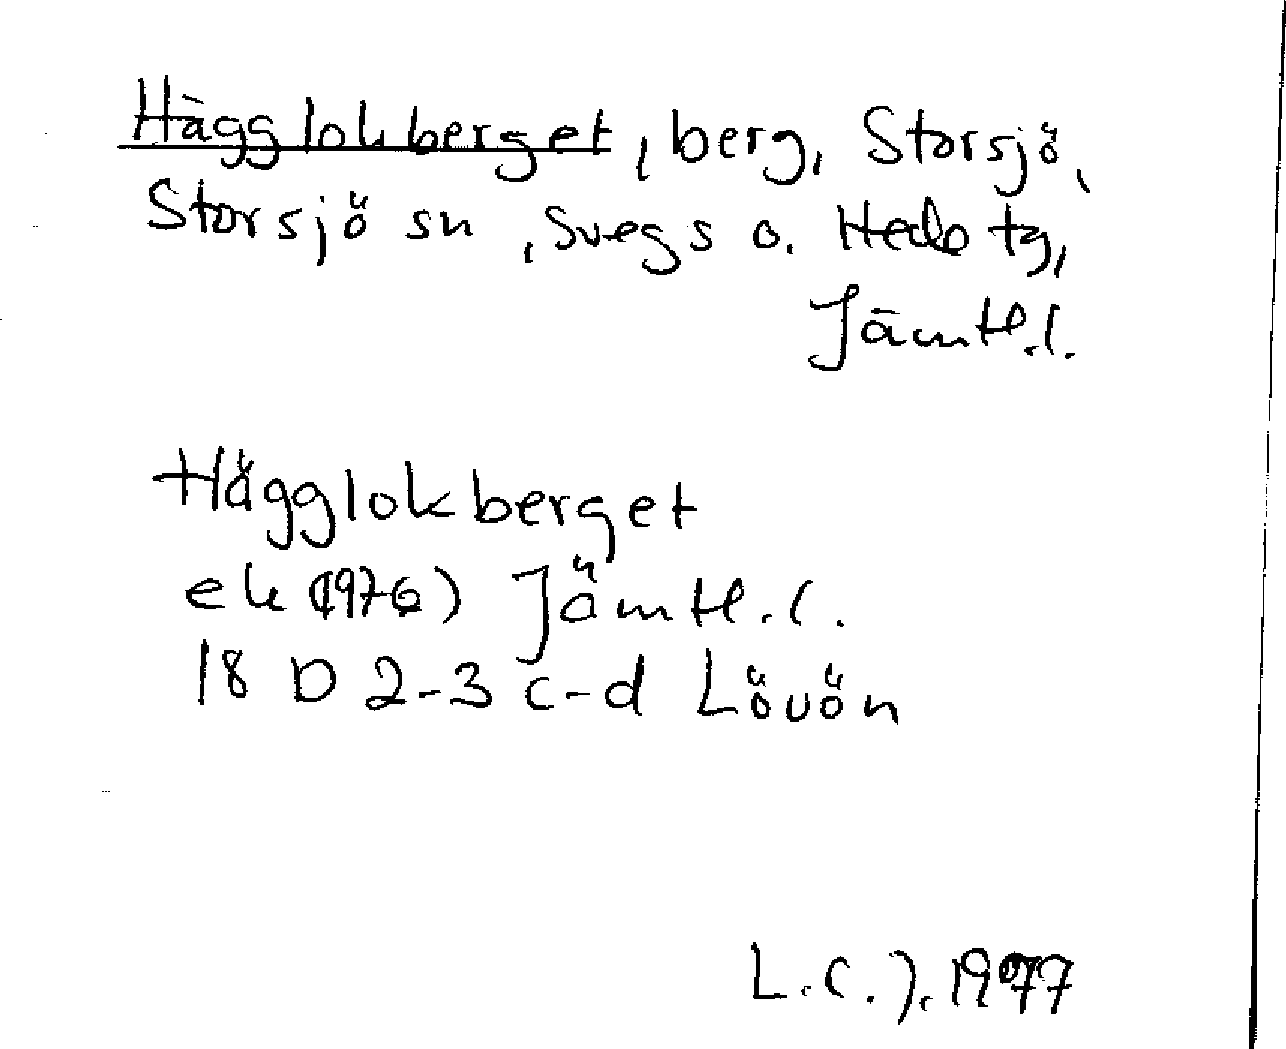 Hägglokberget, berg, Storsjö,
Storsjö sn, Svegs o. Hede tg,
Jämtl.l.
Hägglokberget
ek (1976) Jämtl.l.
18 D 2-3 c-d Lövön
L.C.J. 1977